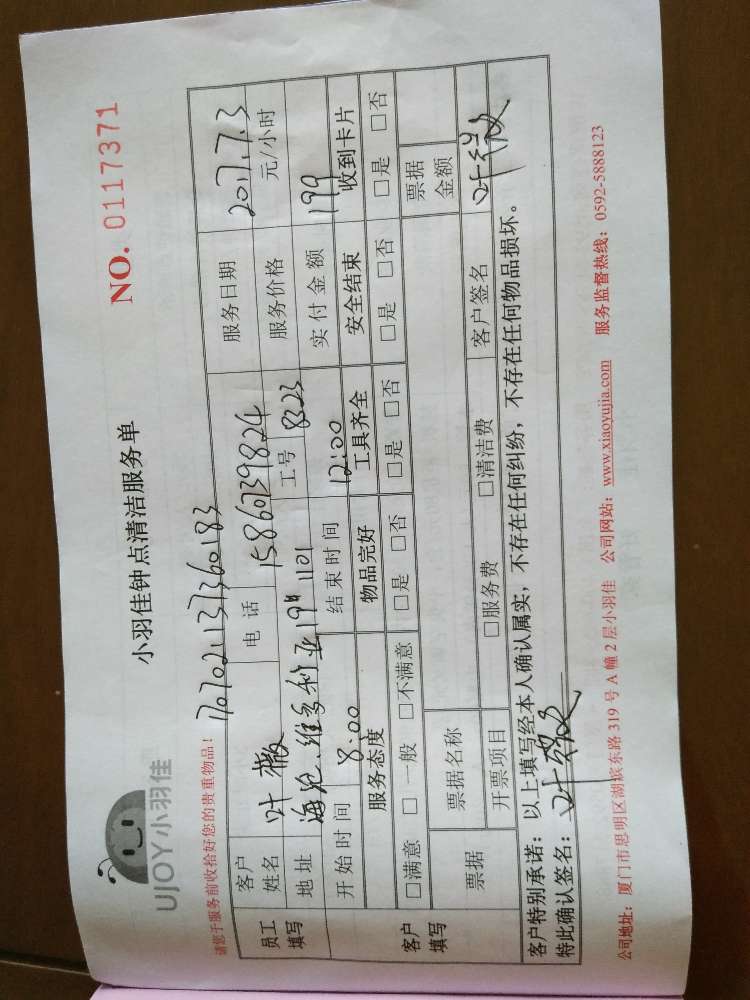 UJOY小羽佳
小羽佳钟点清洁服务单
NO. 0117371
请您于服务前收拾好您的贵重物品！
1707021137360183
员工填写
客户姓名 叶 电话 15860239824 服务日期 2017.7.3
地址 海沧.维多利亚19# 1101 工号 8323 服务价格 元/小时
开始时间 8:00 结束时间 12:00 实付金额 199
客户填写
服务态度 物品完好 工具齐全 安全结束 收到卡片
□满意 □一般 □不满意 □是 □否 □是 □否 □是 □否 □是 □否
票据 票据名称 票据金额
开票项目 □服务费 □清洁费 客户签名 叶
客户特别承诺：以上填写经本人确认属实，不存在任何纠纷，不存在任何物品损坏。
特此确认签名：叶
公司地址：厦门市思明区湖滨东路319号A幢2层小羽佳 公司网站：www.xiaoyujia.com 服务监督热线：0592-5888123